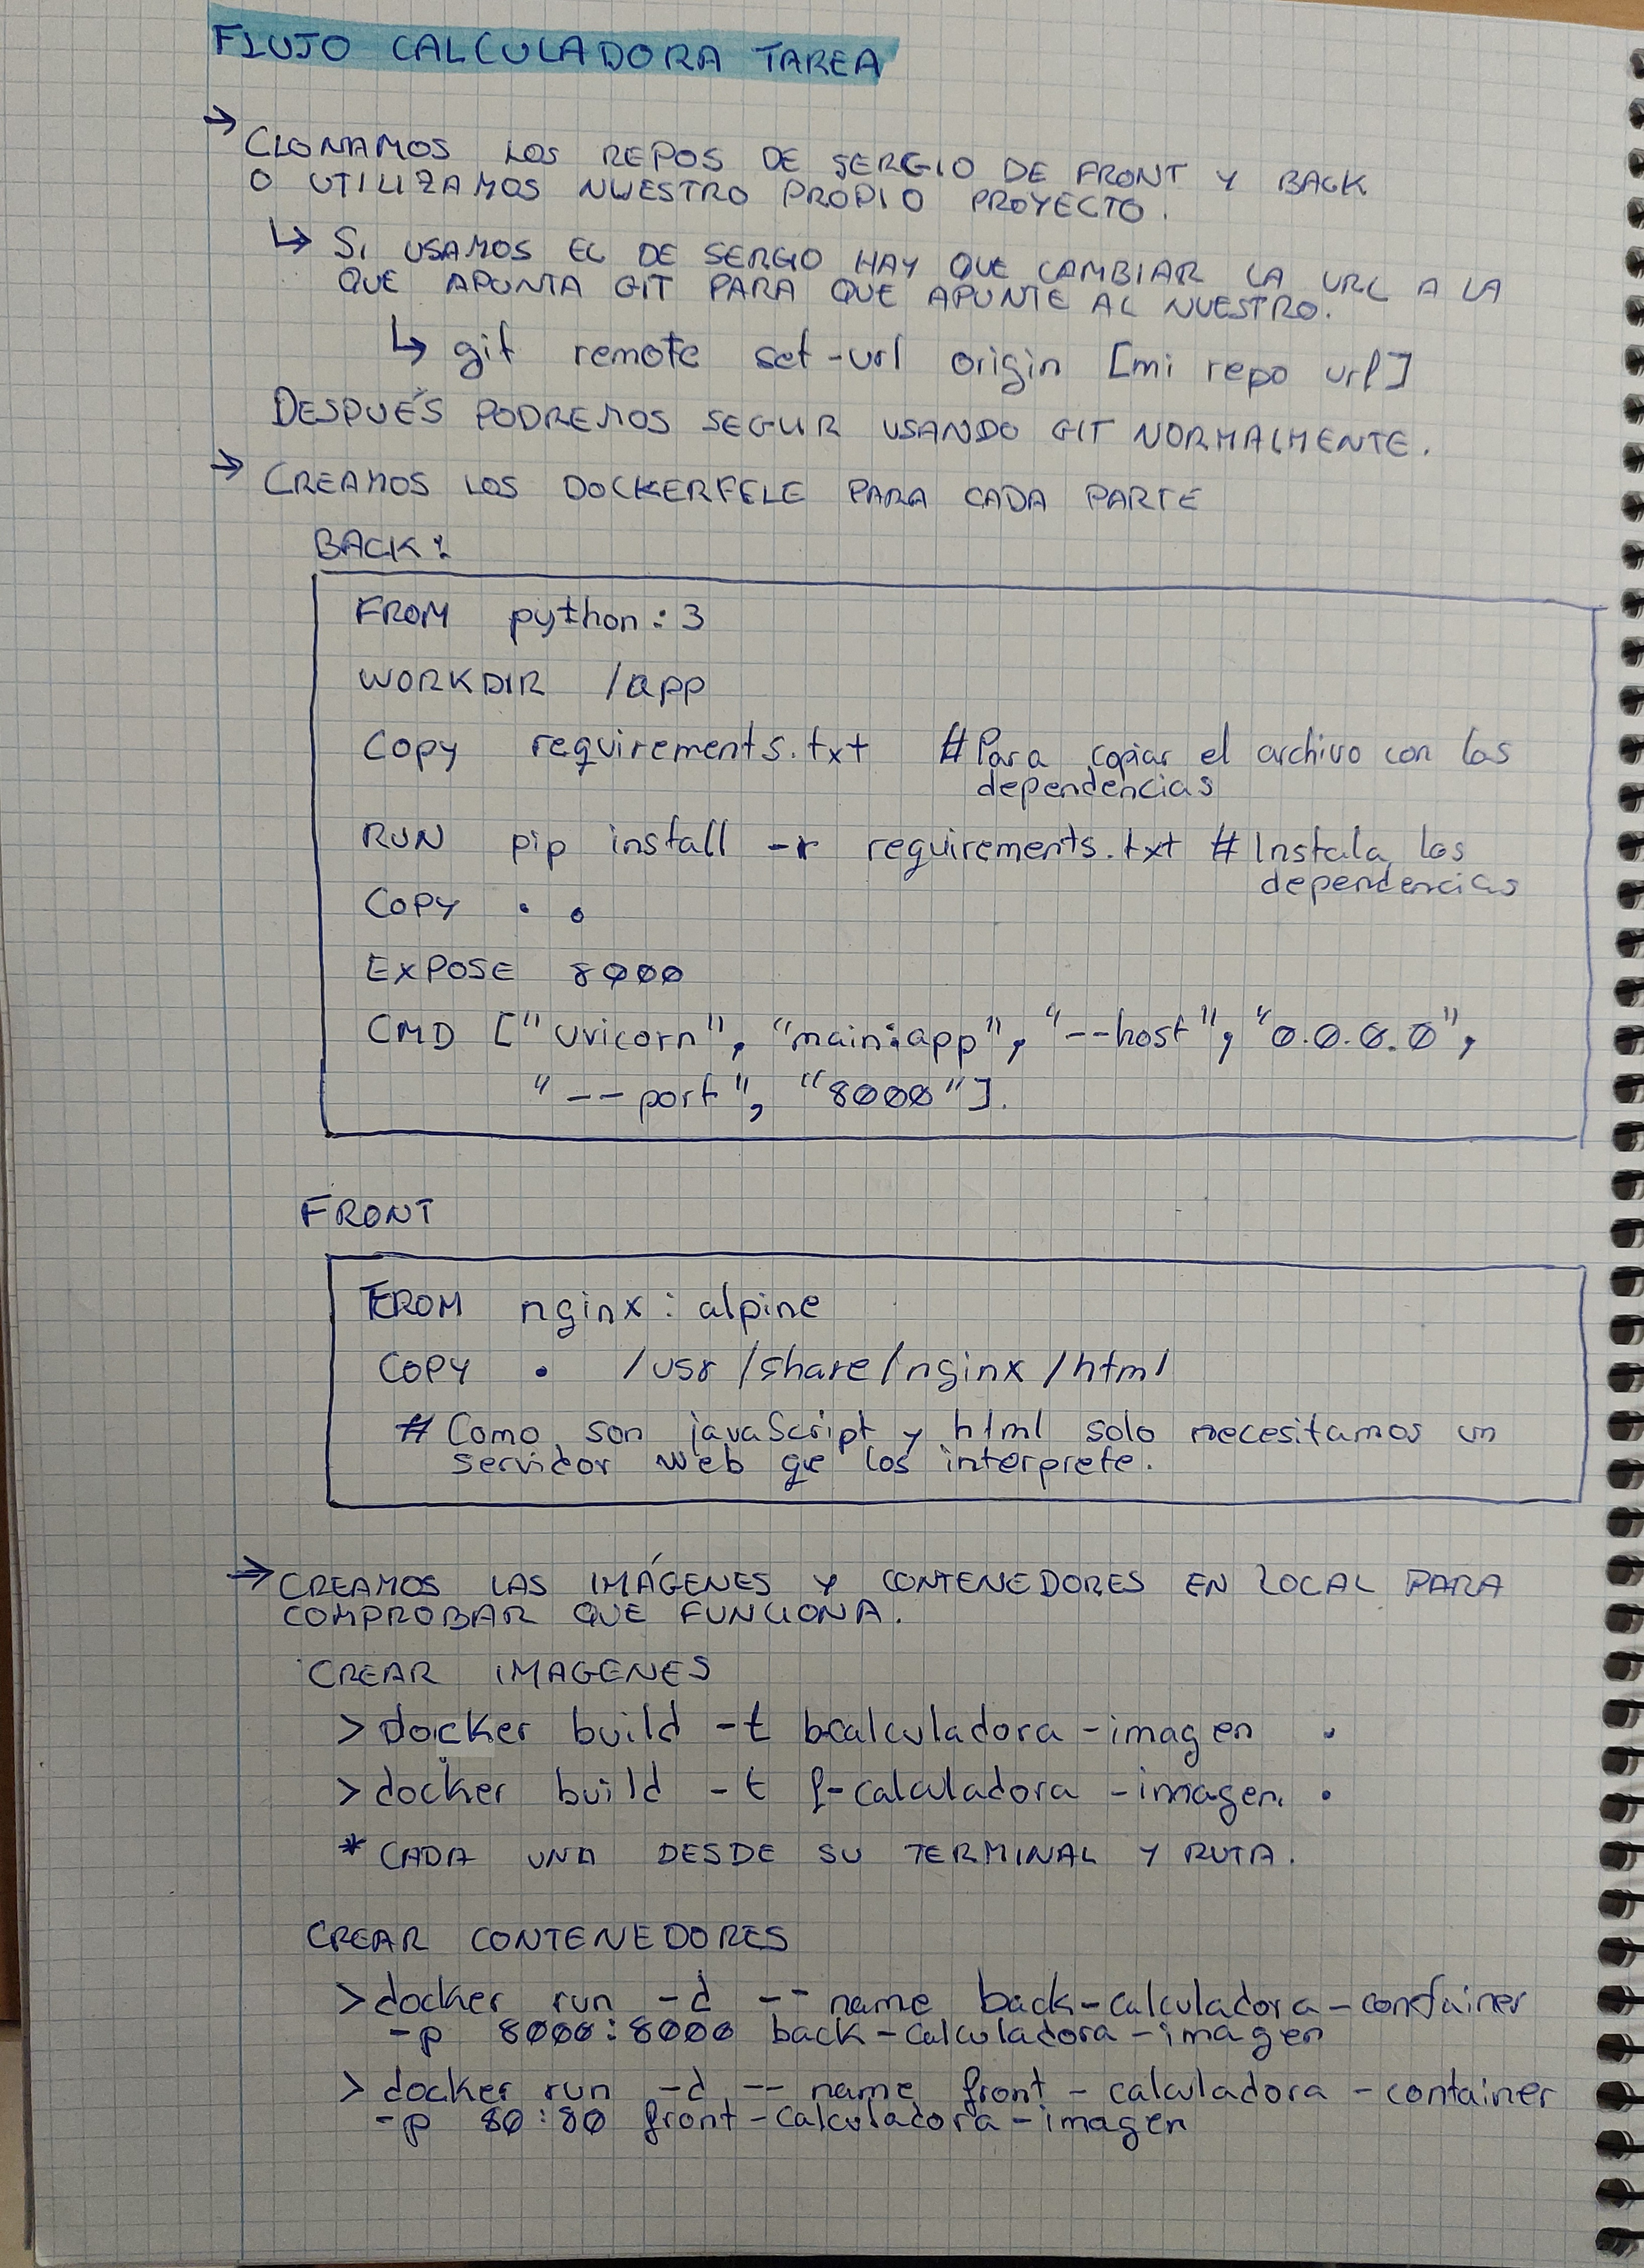 FLUJO CALCULADORA TAREA
→ CLONAMOS LOS REPOS DE SERGIO DE FRONT Y BACK
O UTILIZAMOS NUESTRO PROPIO PROYECTO.
↳ SI USAMOS EL DE SERGIO HAY QUE CAMBIAR LA URL A LA
QUE APUNTA GIT PARA QUE APUNTE AL NUESTRO.
↳ git remote set-url origin [mi repo url]
DESPUÉS PODREMOS SEGUIR USANDO GIT NORMALMENTE.
→ CREAMOS LOS DOCKERFELE PARA CADA PARTE
BACK:
FROM python:3
WORKDIR /app
COPY requirements.txt #Para copiar el archivo con las
dependencias
RUN pip install -r requirements.txt #Instala las
dependencias
COPY . .
EXPOSE 8000
CMD ["uvicorn", "main:app", "--host", "0.0.0.0",
"--port", "8000"].
FRONT
FROM nginx:alpine
COPY . /usr/share/nginx/html
# Como son javaScript y html solo necesitamos un
servidor web que los interprete.
→ CREAMOS LAS IMÁGENES Y CONTENEDORES EN LOCAL PARA
COMPROBAR QUE FUNCIONA.
CREAR IMAGENES
> docker build -t bcalculadora-imagen .
> docker build -t f-calculadora-imagen. .
* CADA UNA DESDE SU TERMINAL Y RUTA.
CREAR CONTENEDORES
> docker run -d --name back-calculadora-container
-p 8000:8000 back-calculadora-imagen
> docker run -d --name front-calculadora-container
-p 80:80 front-calculadora-imagen